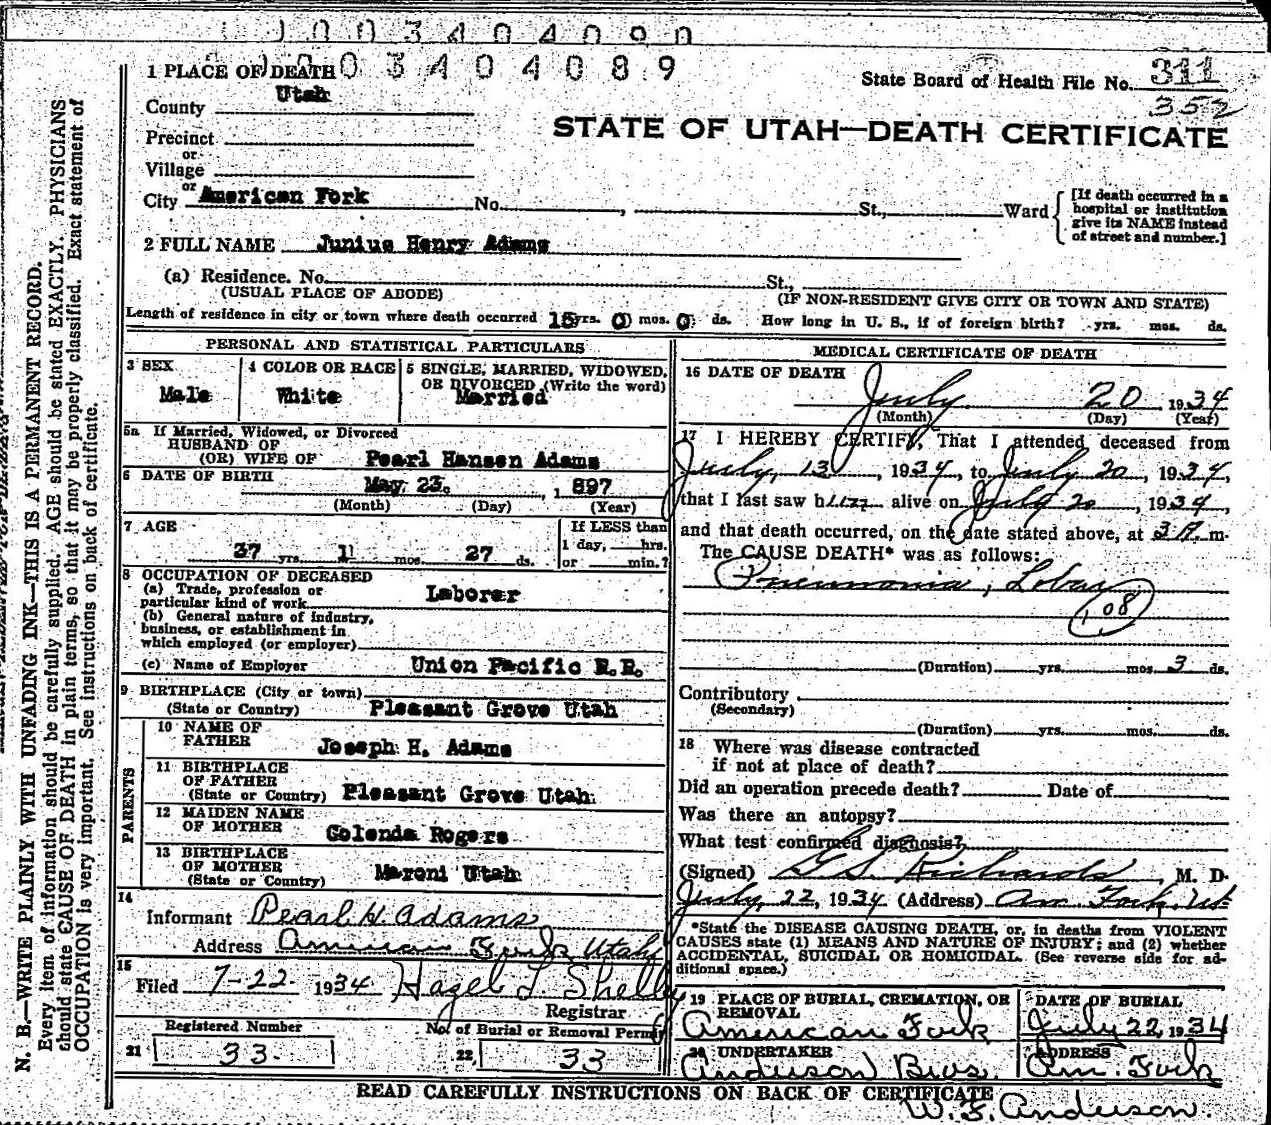 1003404090
1003404089
1 PLACE OF DEATH
State Board of Health File No. 311
352
County Utah
STATE OF UTAH—DEATH CERTIFICATE
Precinct
or
Village
or
City American Fork No. , St., Ward
[If death occurred in a
hospital or institution
give its NAME instead
of street and number.]
2 FULL NAME Junius Henry Adams
(a) Residence. No. St.,
(USUAL PLACE OF ABODE) (IF NON-RESIDENT GIVE CITY OR TOWN AND STATE)
Length of residence in city or town where death occurred 15 yrs. 0 mos. 0 ds. How long in U. S., if of foreign birth? yrs. mos. ds.
PERSONAL AND STATISTICAL PARTICULARS
3 SEX
Male
4 COLOR OR RACE
White
5 SINGLE, MARRIED, WIDOWED,
OR DIVORCED (Write the word)
Married
5a If Married, Widowed, or Divorced
HUSBAND OF
(OR) WIFE OF Pearl Hansen Adams
6 DATE OF BIRTH May 23. , 1 897
(Month) (Day) (Year)
7 AGE
37 yrs. 1 mos. 27 ds.
If LESS than
1 day, hrs.
or min.?
8 OCCUPATION OF DECEASED
(a) Trade, profession or
particular kind of work Laborer
(b) General nature of industry,
business, or establishment in
which employed (or employer)
(c) Name of Employer Union Pacific R.R.
9 BIRTHPLACE (City or town)
(State or Country) Pleasant Grove Utah
PARENTS
10 NAME OF
FATHER Joseph H. Adams
11 BIRTHPLACE
OF FATHER
(State or Country) Pleasant Grove Utah.
12 MAIDEN NAME
OF MOTHER Golenda Rogers
13 BIRTHPLACE
OF MOTHER
(State or Country) Maroni Utah
14
Informant Pearl H. Adams
Address American Fork Utah
15
Filed 7-22- 1934 Hazel L Shelley
Registrar
Registered Number
21 33
No. of Burial or Removal Permit
22 33
MEDICAL CERTIFICATE OF DEATH
16 DATE OF DEATH
July 20 , 1934
(Month) (Day) (Year)
17 I HEREBY CERTIFY, That I attended deceased from
July, 13 , 1934, to July 20 , 1934,
that I last saw him alive on July 20 , 1934,
and that death occurred, on the date stated above, at 3 A. m.
The CAUSE DEATH* was as follows:
Pneumonia, Lobar
108
(Duration) yrs. mos. 3 ds.
Contributory
(Secondary)
(Duration) yrs. mos. ds.
18 Where was disease contracted
if not at place of death?
Did an operation precede death? Date of
Was there an autopsy?
What test confirmed diagnosis?
(Signed) G S. Richards , M. D.
July, 22, 1934 (Address) Am. Fork, Ut
*State the DISEASE CAUSING DEATH, or, in deaths from VIOLENT
CAUSES state (1) MEANS AND NATURE OF INJURY; and (2) whether
ACCIDENTAL, SUICIDAL OR HOMICIDAL. (See reverse side for ad-
ditional space.)
19 PLACE OF BURIAL, CREMATION, OR
REMOVAL
American Fork
DATE OF BURIAL
July 22, 1934
20 UNDERTAKER
Anderson Bros.
ADDRESS
Am. Fork
READ CAREFULLY INSTRUCTIONS ON BACK OF CERTIFICATE
W. F. Anderson.
N. B.—WRITE PLAINLY WITH UNFADING INK—THIS IS A PERMANENT RECORD.
Every item of information should be carefully supplied. AGE should be stated EXACTLY. PHYSICIANS
should state CAUSE OF DEATH in plain terms, so that it may be properly classified. Exact statement of
OCCUPATION is very important. See instructions on back of certificate.